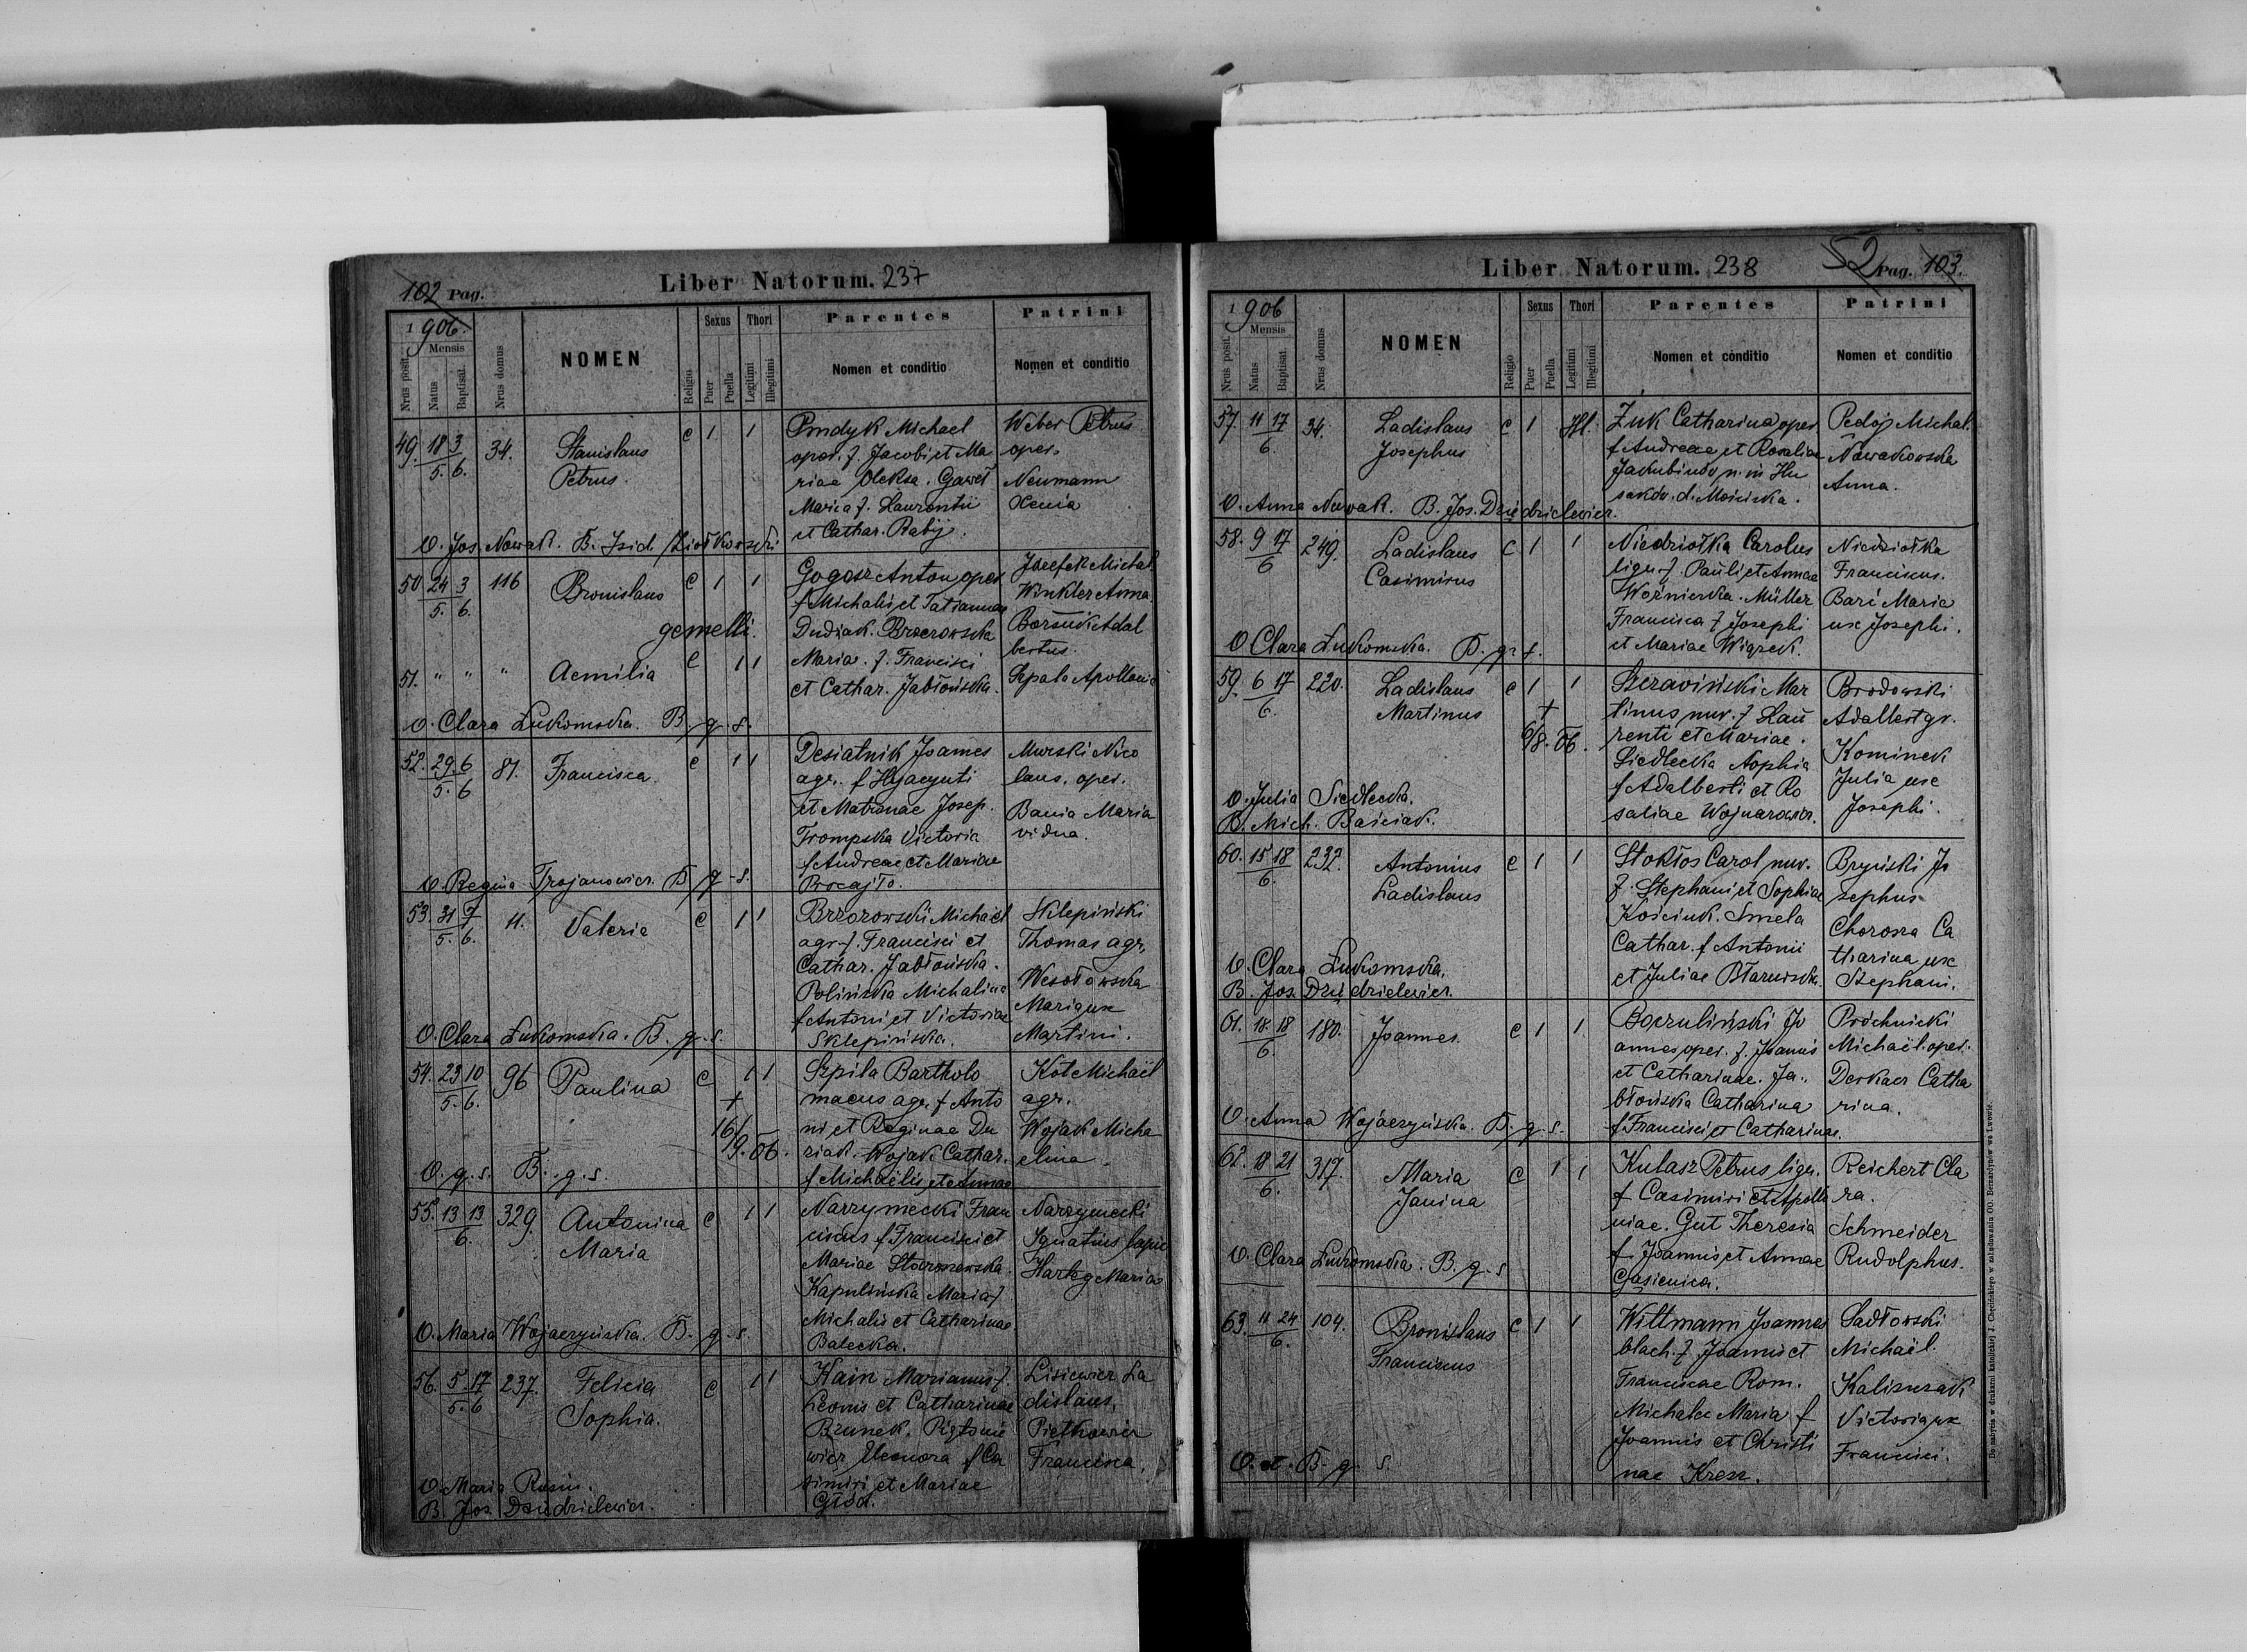 102 Pag.
Liber Natorum. 237
1906.
Mensis
Nrus posit.
Natus
Baptisat.
Nrus domus
NOMEN
Religio
Sexus
Puer
Puella
Thori
Legitimi
Illegitimi
Parentes
Nomen et conditio
Patrini
Nomen et conditio
49. 18/5. 3/6. 34. Stanislaus Petrus. c 1 1
Michael
oper. f. Jacobi et Ma
riae Oleksa. Gaweł
Maria f. Laurentii
et Cathar. Rabij.
Weber Petrus
oper.
Neumann
Xenia
O. Jos. Nowak. B. Isid Ziołkowski
50. 24/5. 3/6. 116 Bronislaus c 1 1
gemelli.
51. " " " Aemilia c 1 1
Gogosz Anton oper
f Michaelis et Tatiannae
Dudiak. Brzozowska
Maria. f. Francisci
et Cathar. Jabłońska.
Józefek Michał
Winkler Anna
Borsuk Adal
bertus.
Szpala Apollonia
O. Clara Łukomska. B. q. s.
52. 29/5. 6/6 81. Francisca. c 1 1
Desiatnik Joannes
agr. f Hyacynti
et Matronae Josep.
Trompska Victoria
f Andreae et Mariae
Procajło.
Murski Nico
laus, oper.
Bania Maria
vidua.
O. Regina Trojanowicz. B. q. s.
53. 31/5. 7/6. 11. Valeria c 1 1
Brzozowski Michael
agr. f. Francisci et
Cathar. Jabłońska.
Polińska Michalina
f Antoni et Victoriae
Sklepińska.
Sklepiński
Thomas agr.
Wesołowska
Maria ux
Martini.
O. Clara Łukomska. B. q. s.
54. 23/5. 10/6. 96 Paulina c 1 1
+
16/9. 06.
Szpila Bartholo
maeus agr. f Anto
ni et Reginae Du
riak. Wojak Cathar.
f Michaëlis et Annae
Kot Michaël
agr.
Wojak Micha
elina.
O. q. s. B. q. s.
55. 13 13/6. 329. Antonina Maria c 1 1
Narzymecki Fran
ciscus f Francisci et
Mariae
Kapulińska Maria f
Michalis et Catharinae
Balecka.
Narzymecki
Ignatius
Harteg Maria
O. Maria Wojaczyńska. B. q. s.
56. 5/5. 17/6 237. Felicia Sophia. c 1 1
Hain Marianus f.
Leonis et Catharinae
Brunek. Piątonie
wicz Eleonora f Ca
simiri et Mariae
Głód.
Lisiewicz La
dislaus.
Pietkowicz
Francisca.
O. Maria Rusin.
B. Jos. Dziedzielewicz.
Liber Natorum. 238
52 Pag. 103.
1906
Mensis
Nrus posit.
Natus
Baptisat.
Nrus domus
NOMEN
Religio
Sexus
Puer
Puella
Thori
Legitimi
Illegitimi
Parentes
Nomen et conditio
Patrini
Nomen et conditio
57. 11 17/6. 34. Ladislaus Josephus c 1 Ill.
Żuk Catharina oper
f Andreae et Rosaliae
Jakubindo n. in Hu
saków. d. Mościska.
Pedoj Michał.
Nowakowska
Anna.
O. Anna Nowak. B. Jos. Dziedzielewicz.
58. 9 17/6 249. Ladislaus Casimirus c 1 1
Niedziołka Carolus
lign. f. Pauli et Annae
Woźnierka. Müller
Francisca f Josephi
et Mariae Wiązek.
Niedziołka
Franciscus.
Barć Maria
ux Josephi.
O Clara Łukomska. B. q. s.
59. 6 17/6. 220. Ladislaus Martinus c 1 1
+
6/8. 06.
Szerawiński Mar
tinus mur. f Lau
renti et Mariae.
Siedlecka Sophia
f Adalberti et Ro
saliae Wojnarowicz.
Brodowski
Adalbert gr.
Kominek
Julia ux
Josephi.
O. Julia Siedlecka.
B. Mich. Baściak.
60. 15 18/6. 232. Antonius Ladislaus c 1 1
Stokłos Carol mur.
f. Stephani et Sophiae
Kościuk. Smela
Cathar. f Antonii
et Juliae
Bryński Jo
sephus
Chorosza Ca
tharina ux
Stephani.
O. Clara Łukomska.
B. Jos. Dziedzielewicz.
61. 18 18/6. 180. Joannes. c 1 1
Boczuliński Jo
annes oper. f. Joannis
et Catharinae. Ja-
błońska Catharina
f Francisci et Catharinae.
Próchnicki
Michaël. oper.
Derkacz Catha
rina.
O. Anna Wojaczyńska. B. q. s.
62. 18 21/6. 317. Maria Janina c 1 1
Kulasz Petrus lign.
f Casimiri et Apollo
niae. Gut Theresia
f. Joannis et Annae
Gąsienica.
Reichert Cla
ra.
Schneider
Rudolphus.
O. Clara Łukomska. B. q. s
63. 11 24/6. 104. Bronislaus Franciscus c 1 1
Wittmann Joannes
blach. f Joannis et
Franciscae Rom.
Michalec Maria f
Joannis et Christi
nae Kresz.
Sadłowski
Michaël.
Kaliszczak
Victoria ux
Francisci.
O. et. B. q. s.
Do nabycia w drukarni katolickiej J. Chęcińskiego w zabudowaniu OO. Bernardynów we Lwowie.